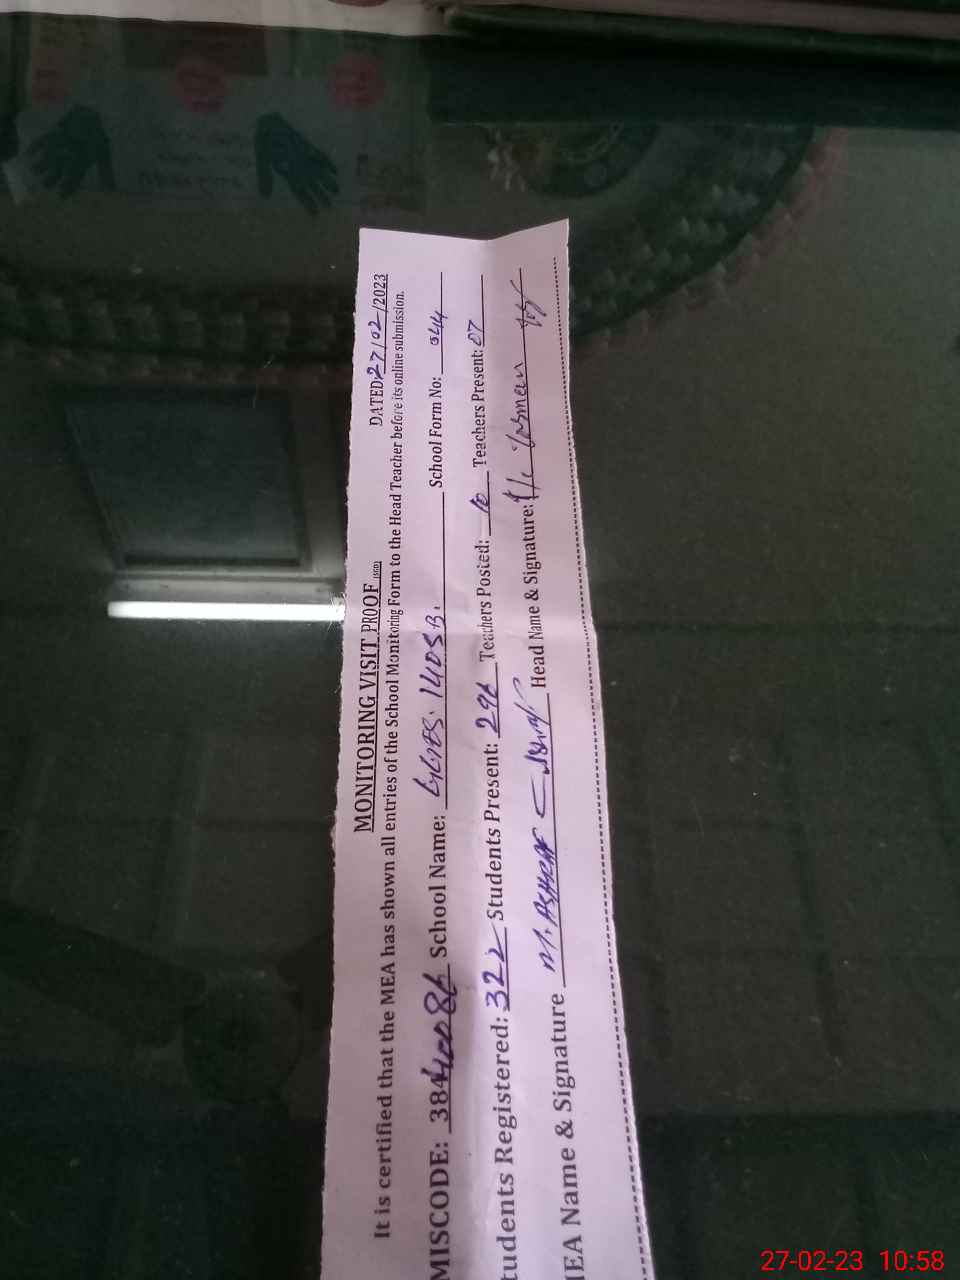 MONITORING VISIT PROOF (SGD) DATED: 27/02/2023
It is certified that the MEA has shown all entries of the School Monitoring Form to the Head Teacher before its online submission.
MISCODE: 38440086 School Name: School Form No: 044
tudents Registered: 322 Students Present: 296 Teachers Posted: 10 Teachers Present: 07
IEA Name & Signature M. ASHRAF Head Name & Signature: Yasmeen
27-02-23 10:58